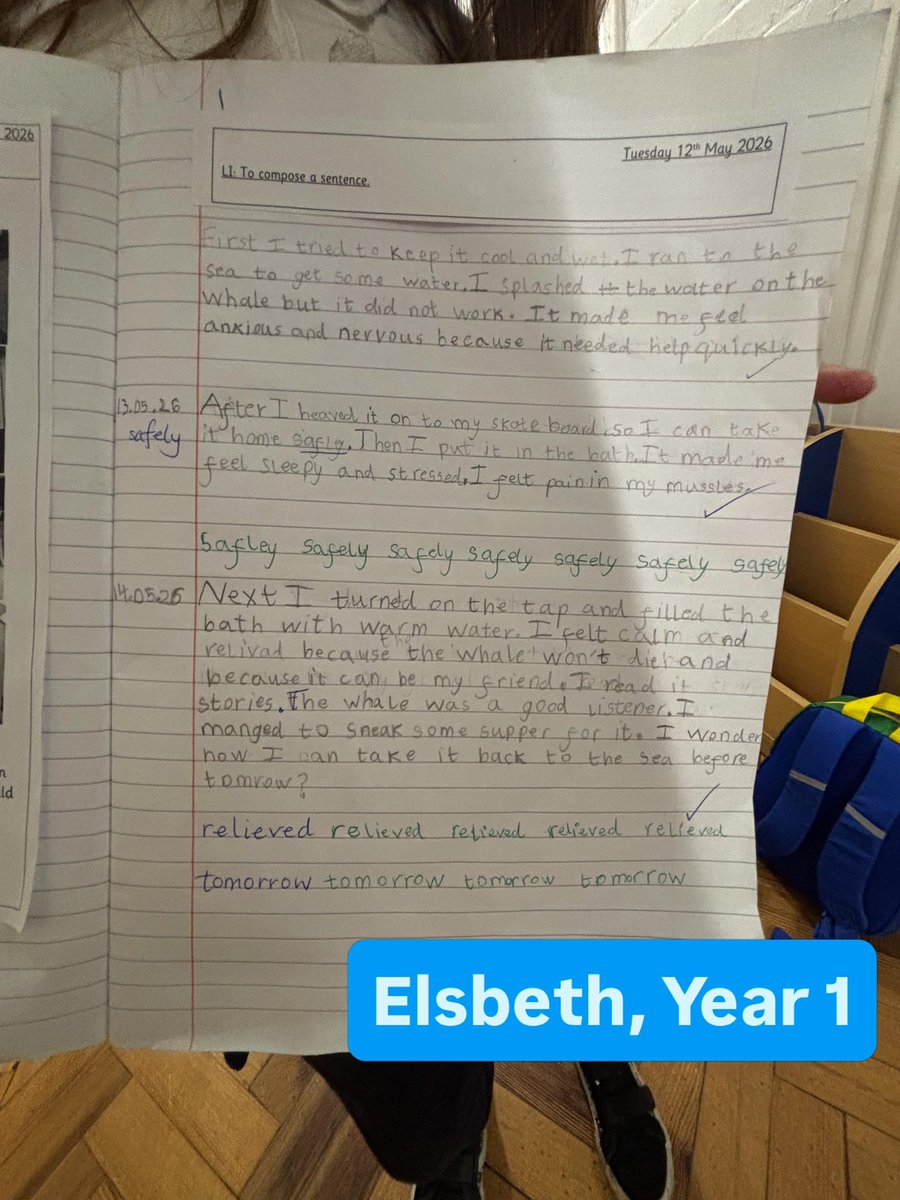 2026
1
Tuesday 12th May 2026
LI: To compose a sentence.
First I tried to keep it cool and wet. I ran to the
sea to get some water. I splashed the water on the
whale but it did not work. It made me feel
anxious and nervous because it needed help quickly.
13.05.26
safely
After I heaved it on to my skate board, so I can take
it home safly. Then I put it in the bath. It made me
feel sleepy and stressed. I felt pain in my mussles.
Safley safely safely safely safely safely safely
14.05.26
Next I turned on the tap and filled the
bath with warm water. I felt calm and
relivad because the whale won't die and
because it can be my friend. I read it
stories. The whale was a good listener. I
manged to sneak some supper for it. I wonder
how I can take it back to the sea before
tomrow?
relieved relieved relieved relieved relieved
tomorrow tomorrow tomorrow tomorrow
n
ld
Elsbeth, Year 1